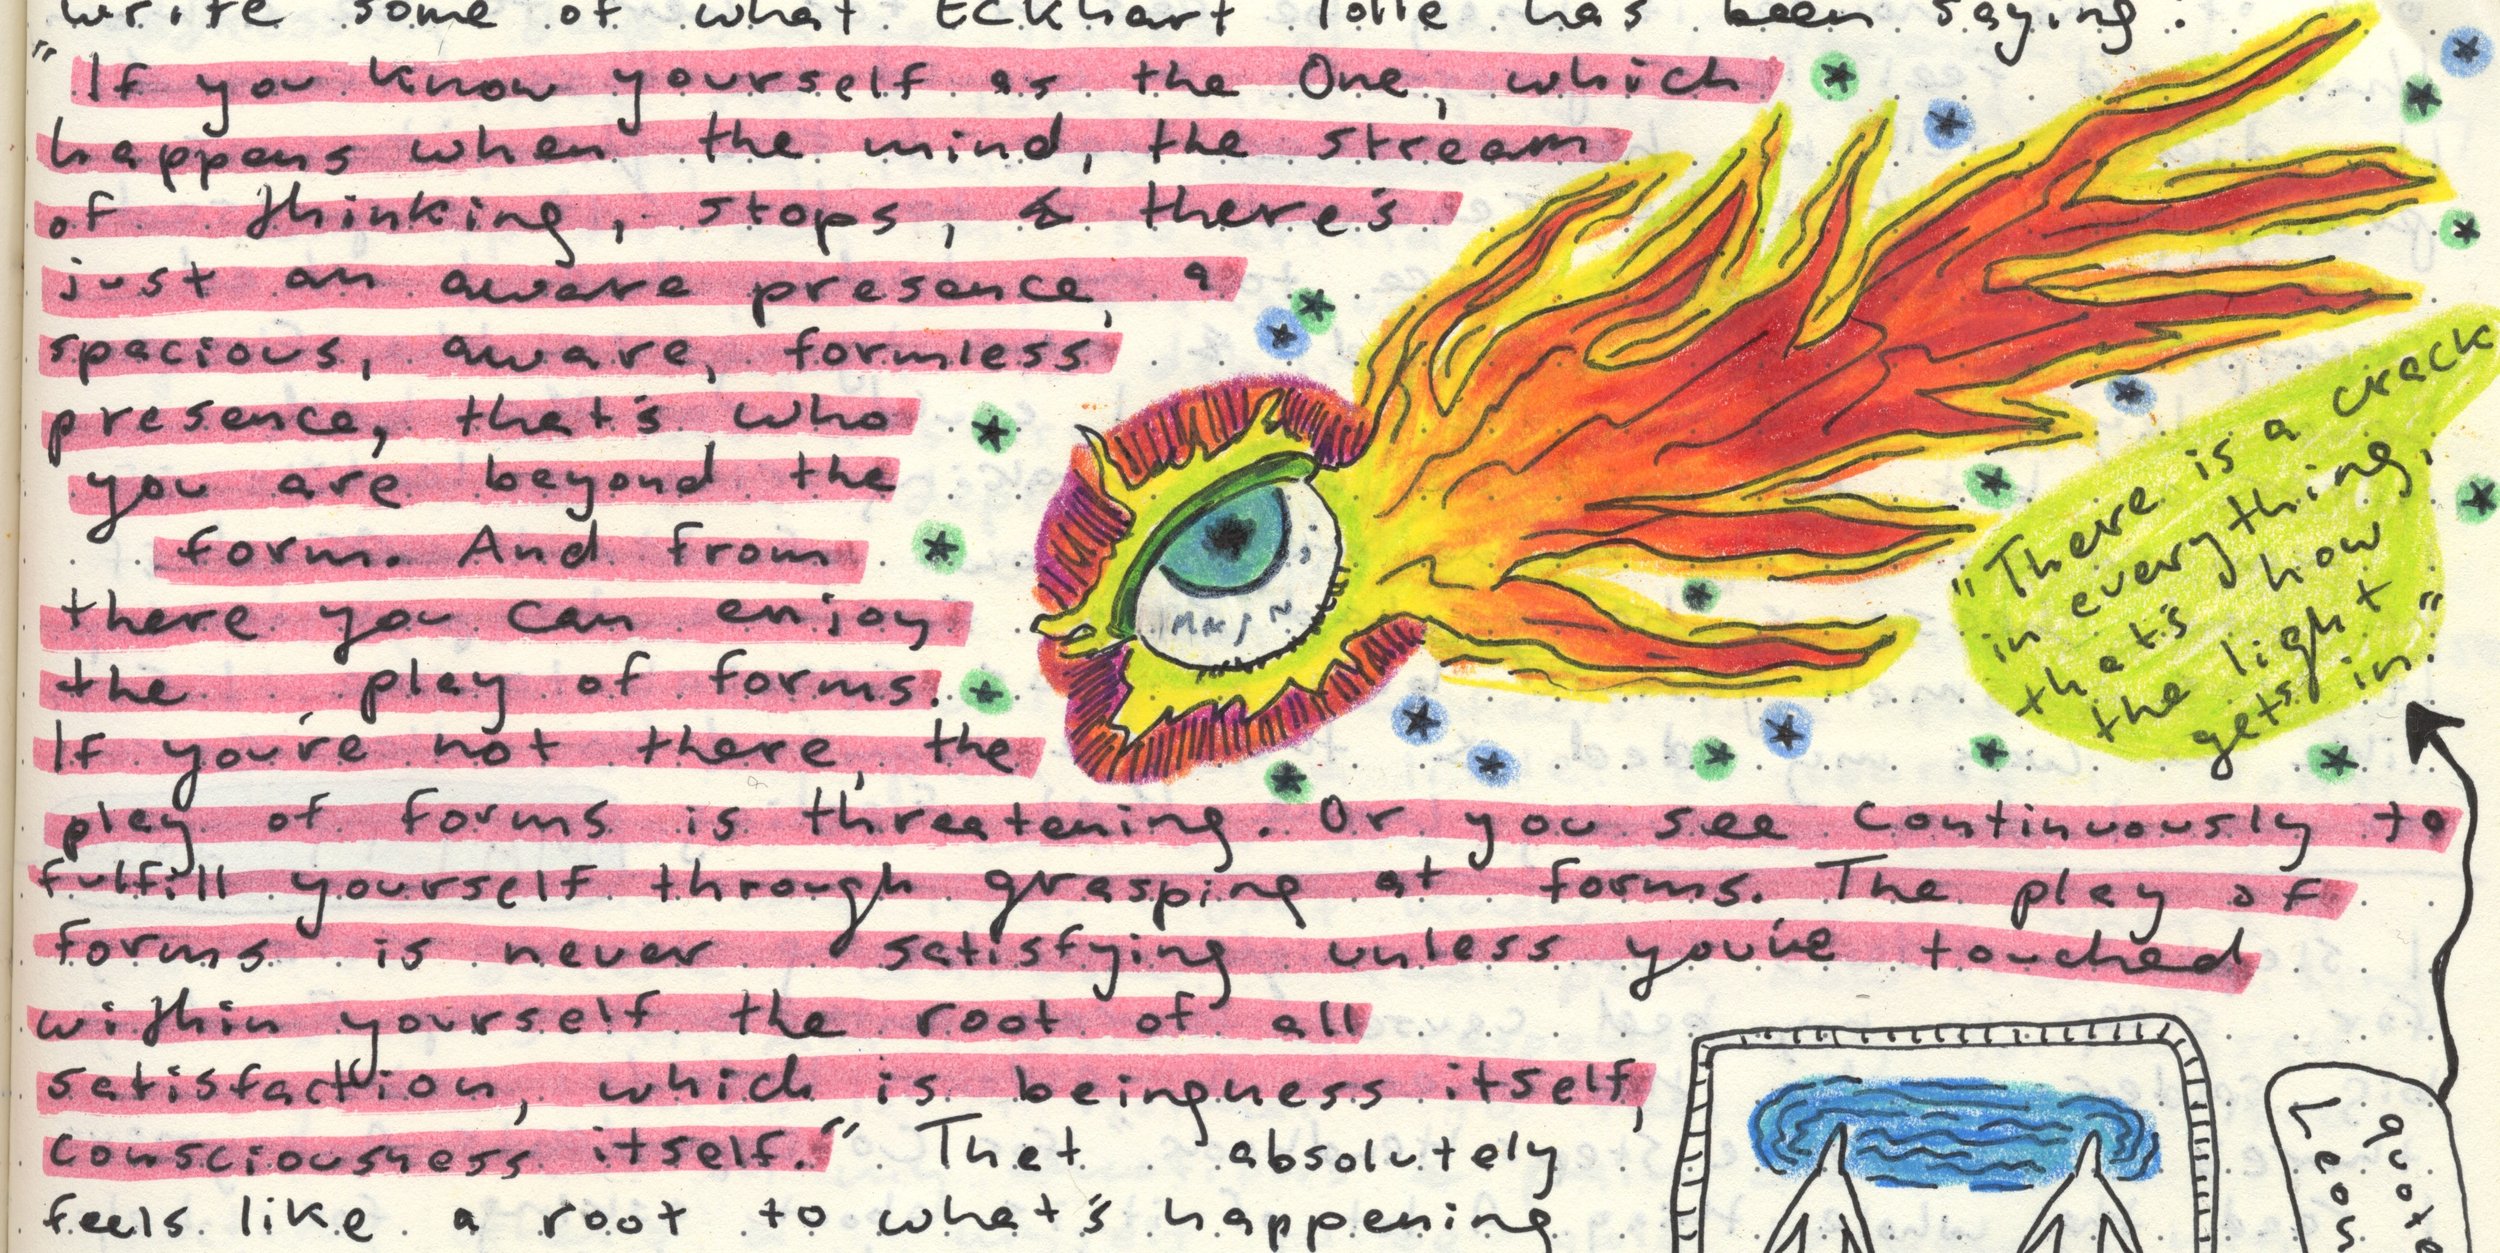 write some of what Eckhart Tolle has been saying:
"If you know yourself as the One, which
happens when the mind, the stream
of thinking, stops, & there's
just an aware presence, a
spacious, aware, formless
presence, that's who
you are beyond the
form. And from
there you can enjoy
the play of forms.
If you're not there, the
play of forms is threatening. Or you see continuously to
fulfill yourself through grasping at forms. The play of
forms is never satisfying unless you've touched
within yourself the root of all
satisfaction, which is beingness itself,
consciousness itself." That absolutely
feels like a root to what's happening
"There is a crack
in everything,
that's how
the light
gets in."
quote